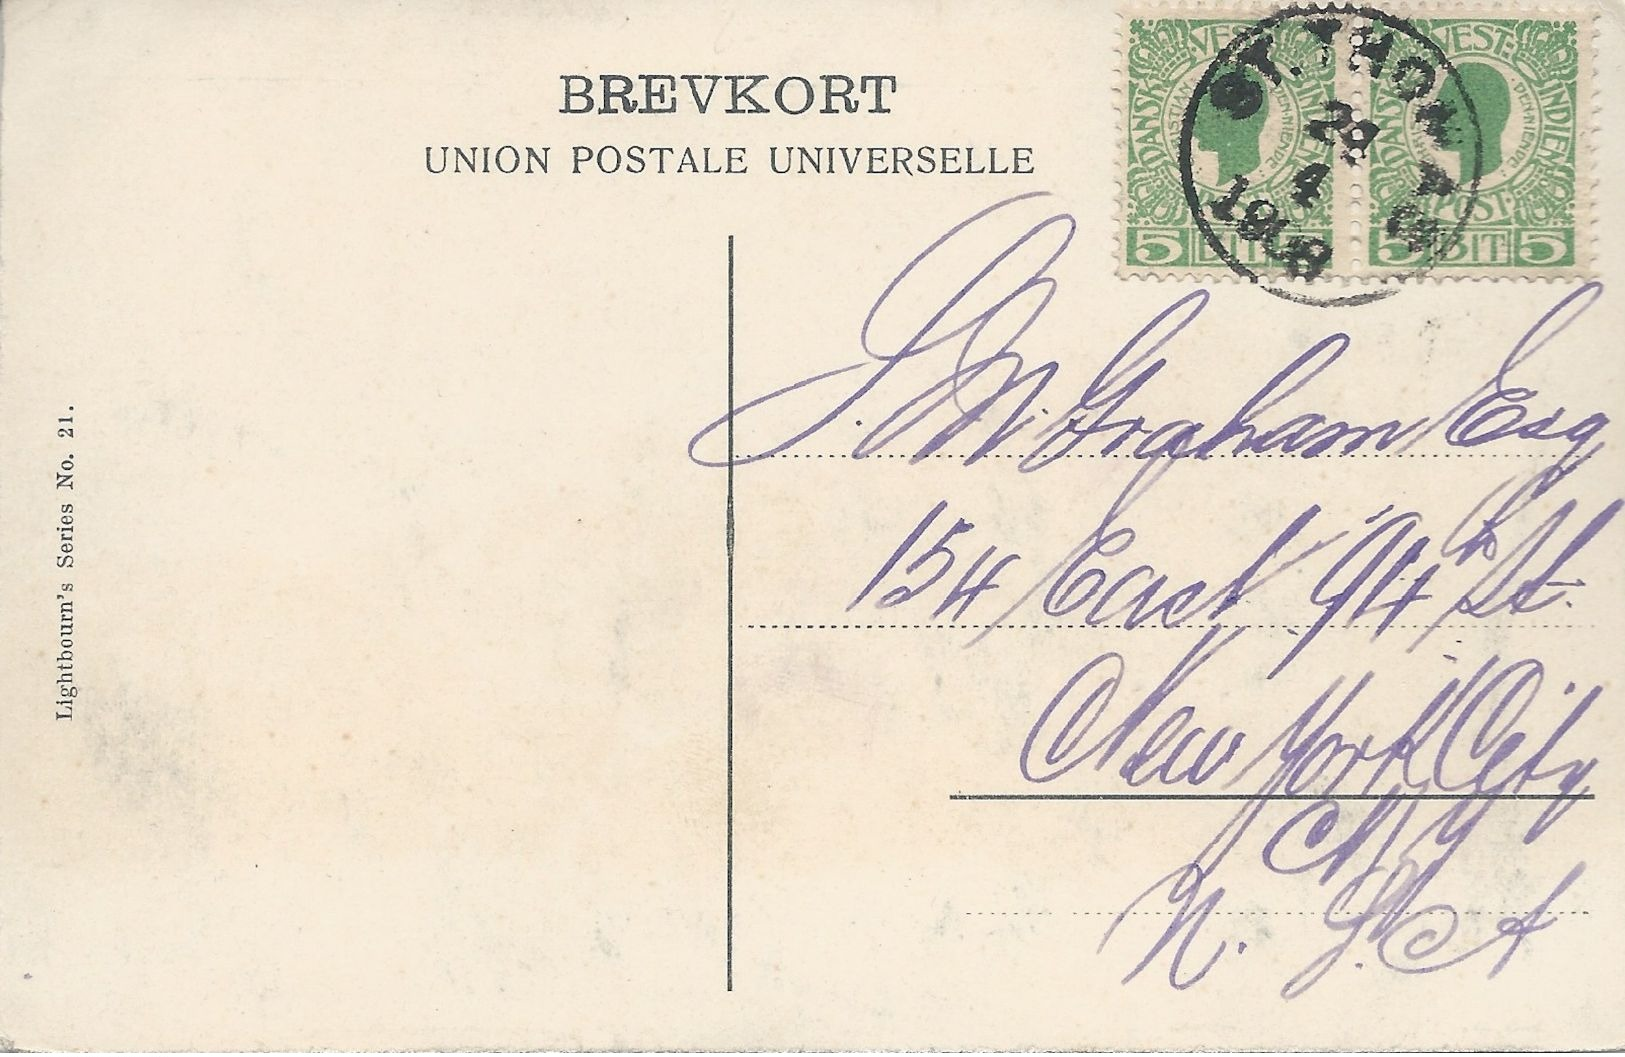 BREVKORT
UNION POSTALE UNIVERSELLE
DANSK VEST INDIEN
5 BIT 5
DANSK VEST INDIEN
POST
5 BIT 5
ST. THOM
4
1908
Lightbourn's Series No. 21.
S. N. Graham Esq
154 East 94th St.
New York City
N. Y.
U. S. A